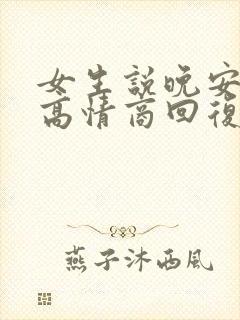 女生説晚安
高情商回復
燕子沐西風